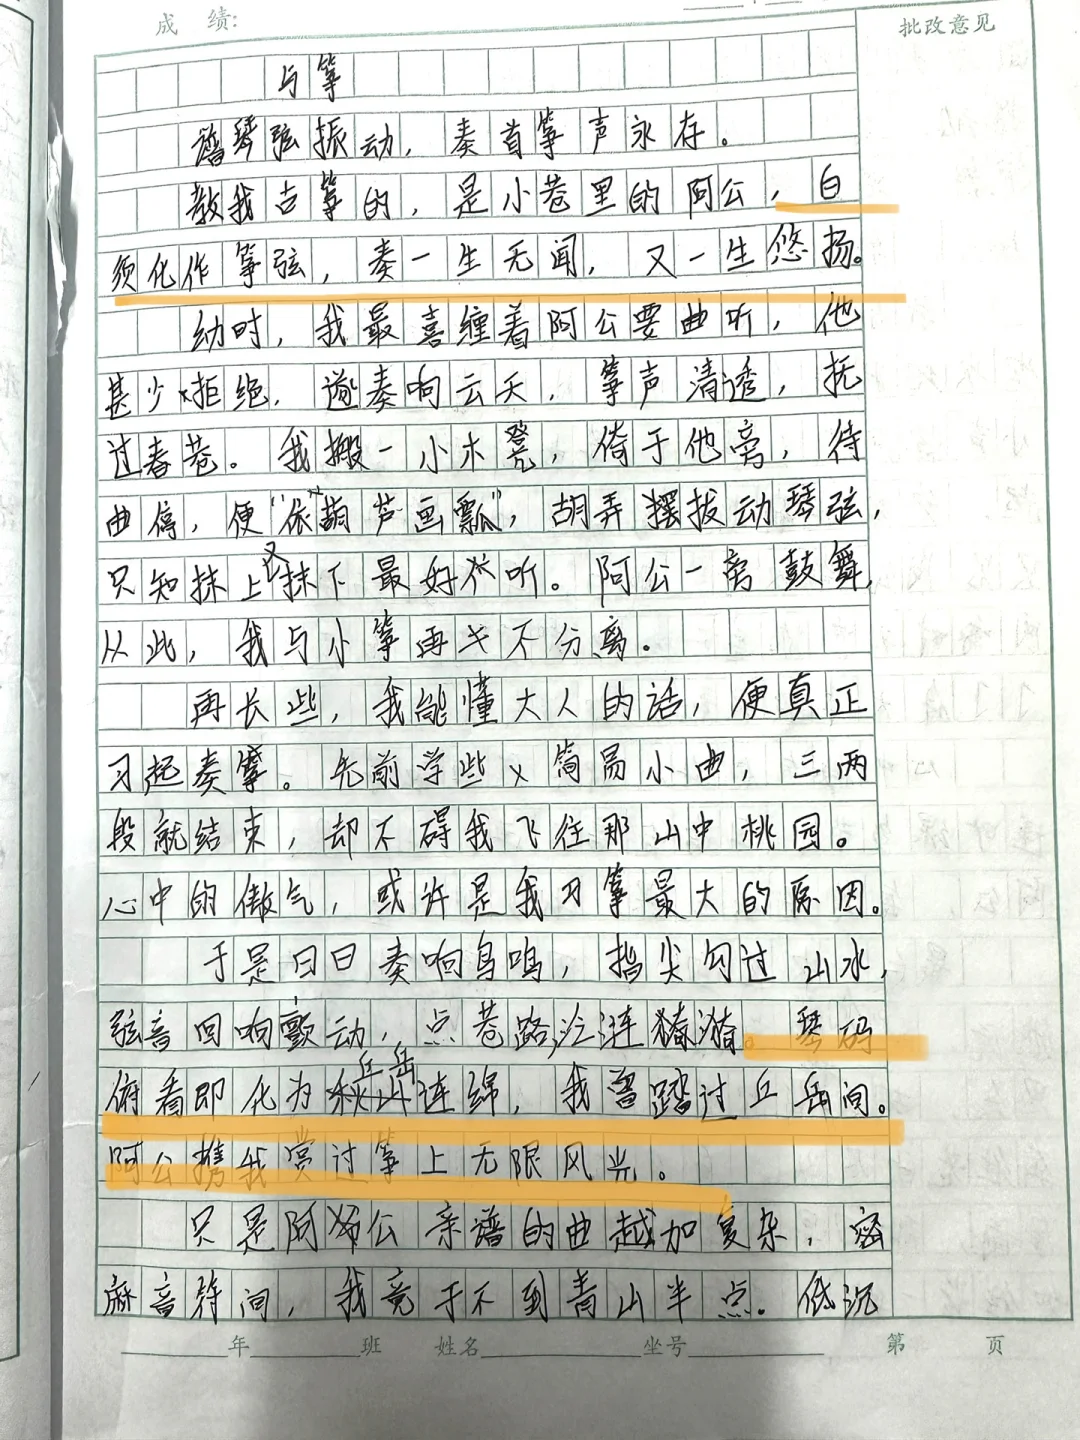 成 绩:
批改意见
与筝
谱琴弦振动，奏首筝声永存。
教我古筝的，是小巷里的阿公，白
须化作筝弦，奏一生无闻，又一生悠扬。
幼时，我最喜缠着阿公要曲听，他
甚少拒绝，遂奏响云天，筝声清透，抚
过春巷。我搬一小木凳，倚于他旁，待
曲停，便“依葫芦画瓢”，胡弄摆拔动琴弦，
只知抹上又抹下最好听。阿公一旁鼓舞，
从此，我与小筝再 不分离。
再长些，我能懂大人的话，便真正
习起奏筝。先前学些简易小曲，三两
段就结束，却不碍我飞往那山中桃园。
心中的傲气，或许是我习筝最大的原因。
于是日日奏响鸟鸣，指尖勾过山水，
弦音回响颤动，点巷路泛涟漪。琴码
俯看即化为丘岳连绵，我曾踏过丘岳间。
阿公携我赏过筝上无限风光。
只是阿公亲谱的曲越加复杂，密
麻音符间，我竟寻不到青山半点。低沉
年 班 姓名 坐号 第 页